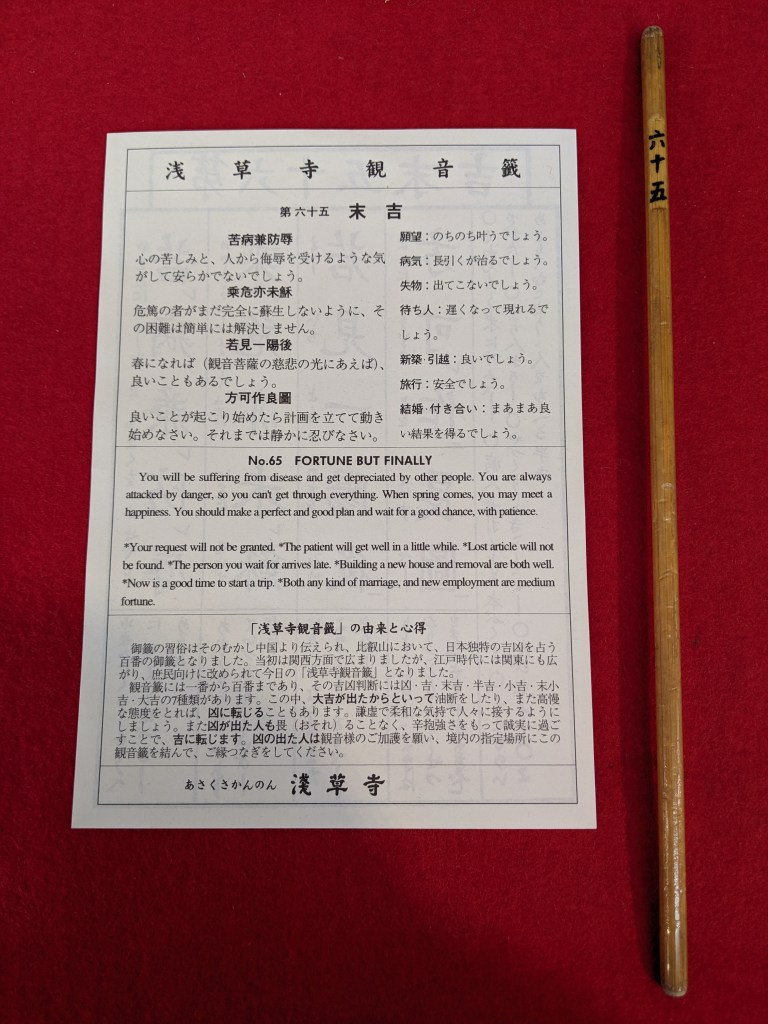 浅草寺観音籤
第六十五 末吉
苦病兼防辱
心の苦しみと、人から侮辱を受けるような気
がして安らかでないでしょう。
乗危亦未穌
危篤の者がまだ完全に蘇生しないように、そ
の困難は簡単には解決しません。
若見一陽後
春になれば（観音菩薩の慈悲の光にあえば）、
良いこともあるでしょう。
方可作良圖
良いことが起こり始めたら計画を立てて動き
始めなさい。それまでは静かに忍びなさい。
願望：のちのち叶うでしょう。
病気：長引くが治るでしょう。
失物：出てこないでしょう。
待ち人：遅くなって現れるで
しょう。
新築·引越：良いでしょう。
旅行：安全でしょう。
結婚·付き合い：まあまあ良
い結果を得るでしょう。
No.65 FORTUNE BUT FINALLY
You will be suffering from disease and get depreciated by other people. You are always
attacked by danger, so you can't get through everything. When spring comes, you may meet a
happiness. You should make a perfect and good plan and wait for a good chance, with patience.
*Your request will not be granted. *The patient will get well in a little while. *Lost article will not
be found. *The person you wait for arrives late. *Building a new house and removal are both well.
*Now is a good time to start a trip. *Both any kind of marriage, and new employment are medium
fortune.
「浅草寺観音籤」の由来と心得
御籤の習俗はそのむかし中国より伝えられ、比叡山において、日本独特の吉凶を占う
百番の御籤となりました。当初は関西方面で広まりましたが、江戸時代には関東にも広
がり、庶民向けに改められて今日の「浅草寺観音籤」となりました。
観音籤には一番から百番まであり、その吉凶判断には凶·吉·末吉·半吉·小吉·末小
吉·大吉の7種類があります。この中、大吉が出たからといって油断をしたり、また高慢
な態度をとれば、凶に転じることもあります。謙虚で柔和な気持で人々に接するように
しましょう。また凶が出た人も畏（おそれ）ることなく、辛抱強さをもって誠実に過ご
すことで、吉に転じます。凶の出た人は観音様のご加護を願い、境内の指定場所にこの
観音籤を結んで、ご縁つなぎをしてください。
あさくさかんのん 淺草寺
六十五